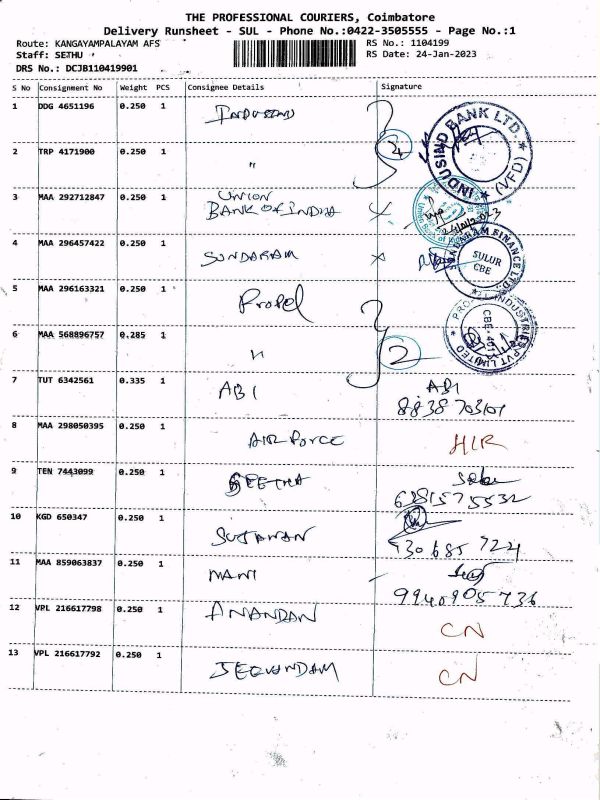 THE PROFESSIONAL COURIERS, Coimbatore
Delivery Runsheet - SUL - Phone No.:0422-3505555 - Page No.:1
Route: KANGAYAMPALAYAM AFS RS No.: 1104199
Staff: SETHU RS Date: 24-Jan-2023
DRS No.: DCJB110419901
S No Consignment No Weight PCS Consignee Details Signature
1 DDG 4651196 0.250 1 INDUSIND
INDUSIND BANK LTD. * (VFD) *
2 TRP 4171900 0.250 1 " 2
3 MAA 292712847 0.250 1 UNION
BANK OF INDIA
24/01/2023
4 MAA 296457422 0.250 1 SUNDARAM
SUNDARAM FINANCE LTD.
SULUR
CBE
5 MAA 296163321 0.250 1 Propel
INDUSTRIES PVT LIMITED
6 MAA 568896757 0.285 1 " 2
7 TUT 6342561 0.335 1 ABI ABI
8838703101
8 MAA 298050395 0.250 1 AIR FORCE HIR
9 TEN 7443099 0.250 1 GEETHA
6381575532
10 KGD 650347 0.250 1
930685724
11 MAA 859063837 0.250 1 MANI
9940905736
12 VPL 216617798 0.250 1 ANANDAN CN
13 VPL 216617792 0.250 1 JEEVANDAM CN